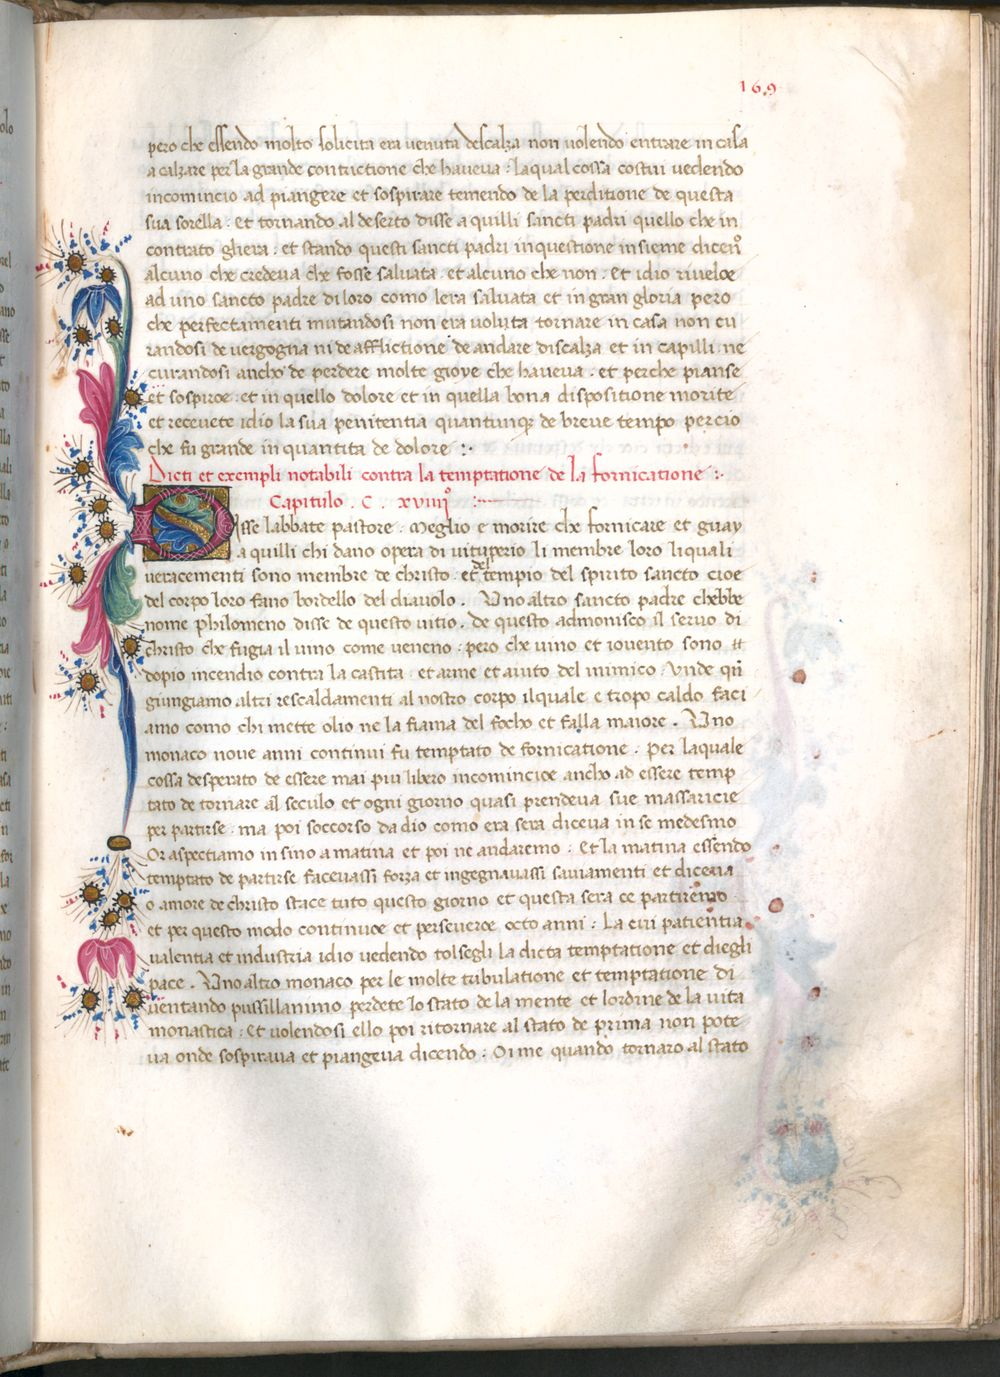 169
pero che essendo molto solicita era venuta descalza non volendo entrare in casa
a calzare per la grande contrictione che haveva : laqual cossa costui vedendo
incomincio ad piangere et sospirare temendo de la perditione de questa
sua sorella : et tornando al deserto disse a quilli sancti padri quello che in
contrato ghera : et stando questi sancti padri in questione insieme dicenº
alcuno che credeva che fosse salvata . et alcuno che non . et idio riveloe
ad uno sancto padre di loro como lera salvata et in gran gloria pero
che perfectamenti mutandosi non era voluta tornare in casa non cu
randosi de vergogna ni de afflictione de andare discalza et in capilli ne
curandosi ancho de perdere molte gioye che haveva . et perche pianse
et sospiroe . et in quello dolore et in quella bona dispositione morite
et recevete idio la sua penitentia quantunq de breve tempo percio
che fu grande in quantita de dolore :.
Dicti et exempli notabili contra la temptatione de la fornicatione :.
Capitulo . C . xviiijº
Disse labbate pastore . Meglio e morire che fornicare et guay
a quilli chi dano opera di vituperio li membre loro liquali
veracementi sono membre de christo . et del tempio del spirito sancto cioe
del corpo loro fano bordello del diavolo . Uno altro sancto padre chebbe
nome philomeno disse de questo vitio . de questo admonisco il servo di
christo che fugia il vino come veneno : pero che vino et iovento sono
dopio incendio contra la castita . et arme et aiuto del inimico . Unde qñ
giungiamo altri rescaldamenti al nostro corpo ilquale e tropo caldo faci
amo como chi mette olio ne la fiama del focho et falla maiore . Uno
monaco nove anni continui fu temptato de fornicatione . per laquale
cossa desperato de essere mai piu libero incomincioe ancho ad essere temp
tato de tornare al seculo et ogni giorno quasi prendeva sue massaricie
per partirse . ma poi soccorso da dio como era sera diceva in se medesmo
Or aspectiamo in sino a matina et poi ne andaremo : Et la matina essendo
temptato de partirse facevassi forza et ingegnavassi saviamenti et diceva
o amore de christo stace tuto questo giorno et questa sera ce partiremo
et per questo modo continuoe et perseveroe octo anni : La cui patientia
valentia et industria idio vedendo tolsegli la dicta temptatione et diegli
pace . Uno altro monaco per le molte tribulatione et temptatione di
ventando pussillanimo perdete lo stato de la mente et lordine de la vita
monastica : et volendosi ello poi ritornare al stato de prima non pote
va onde sospirava et piangeva dicendo : Oi me quando tornaro al stato